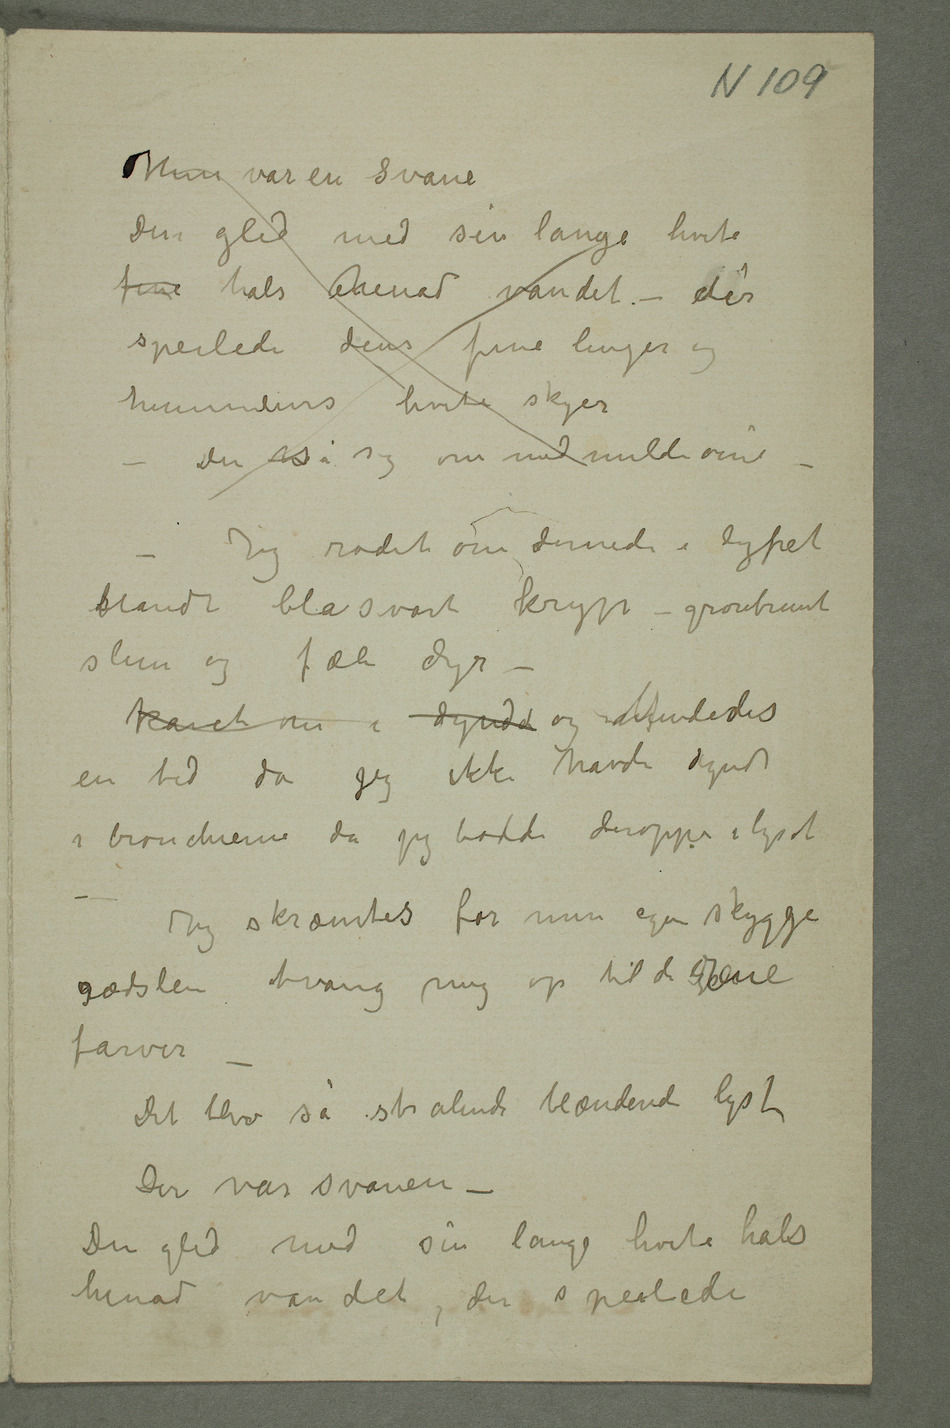 N 109
Hun var en Svane
Den gled med sin lange hvite
fine hals henad vandet. – dér
speilede dens fine linjer og
himmelens hvite skyer
– Den så sig om med milde øine –
– Jeg rodet om dernede i dypet
blandt blåsvart kryp – grønbrunt
slim og fæle dyr –
Kavet om i dyndet og mindedes
en tid da jeg ikke havde dyndt
i bronchierne da jeg bodde deroppe i lyset
–
Jeg skræmtes for min egen skygge
rædslen tvang mig op til de rene
farver –
Det blev så strålende blændende lyst
Der var svanen –
Den gled med sin lange hvite hals
henad vandet, der speilede